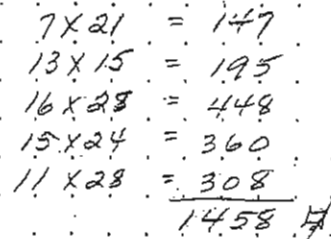 7 X 21 = 147
13 X 15 = 195
16 X 28 = 448
15 X 24 = 360
11 X 28 = 308
1458 #